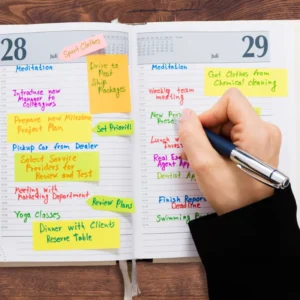 28
Juli
Sport Clothes
Meditation
Drive to
Post
Ship
Packages
Introduce new
Manager to
Colleagues
Prepare new Milestone
Project Plan
Set Prioriti
Pickup Car from Dealer
Select Service
Providers for
Review and Test
Meeting with
Marketing Department
Review Plans
Yoga Classes
Dinner with Clients
Reserve Table
29
Juli
Meditation
Got Clothes from
Chemical cleaning
Weekly team
meeting
New
Lunch
Real
Agent
Dentist
Finish Report
Deadline
Swimming